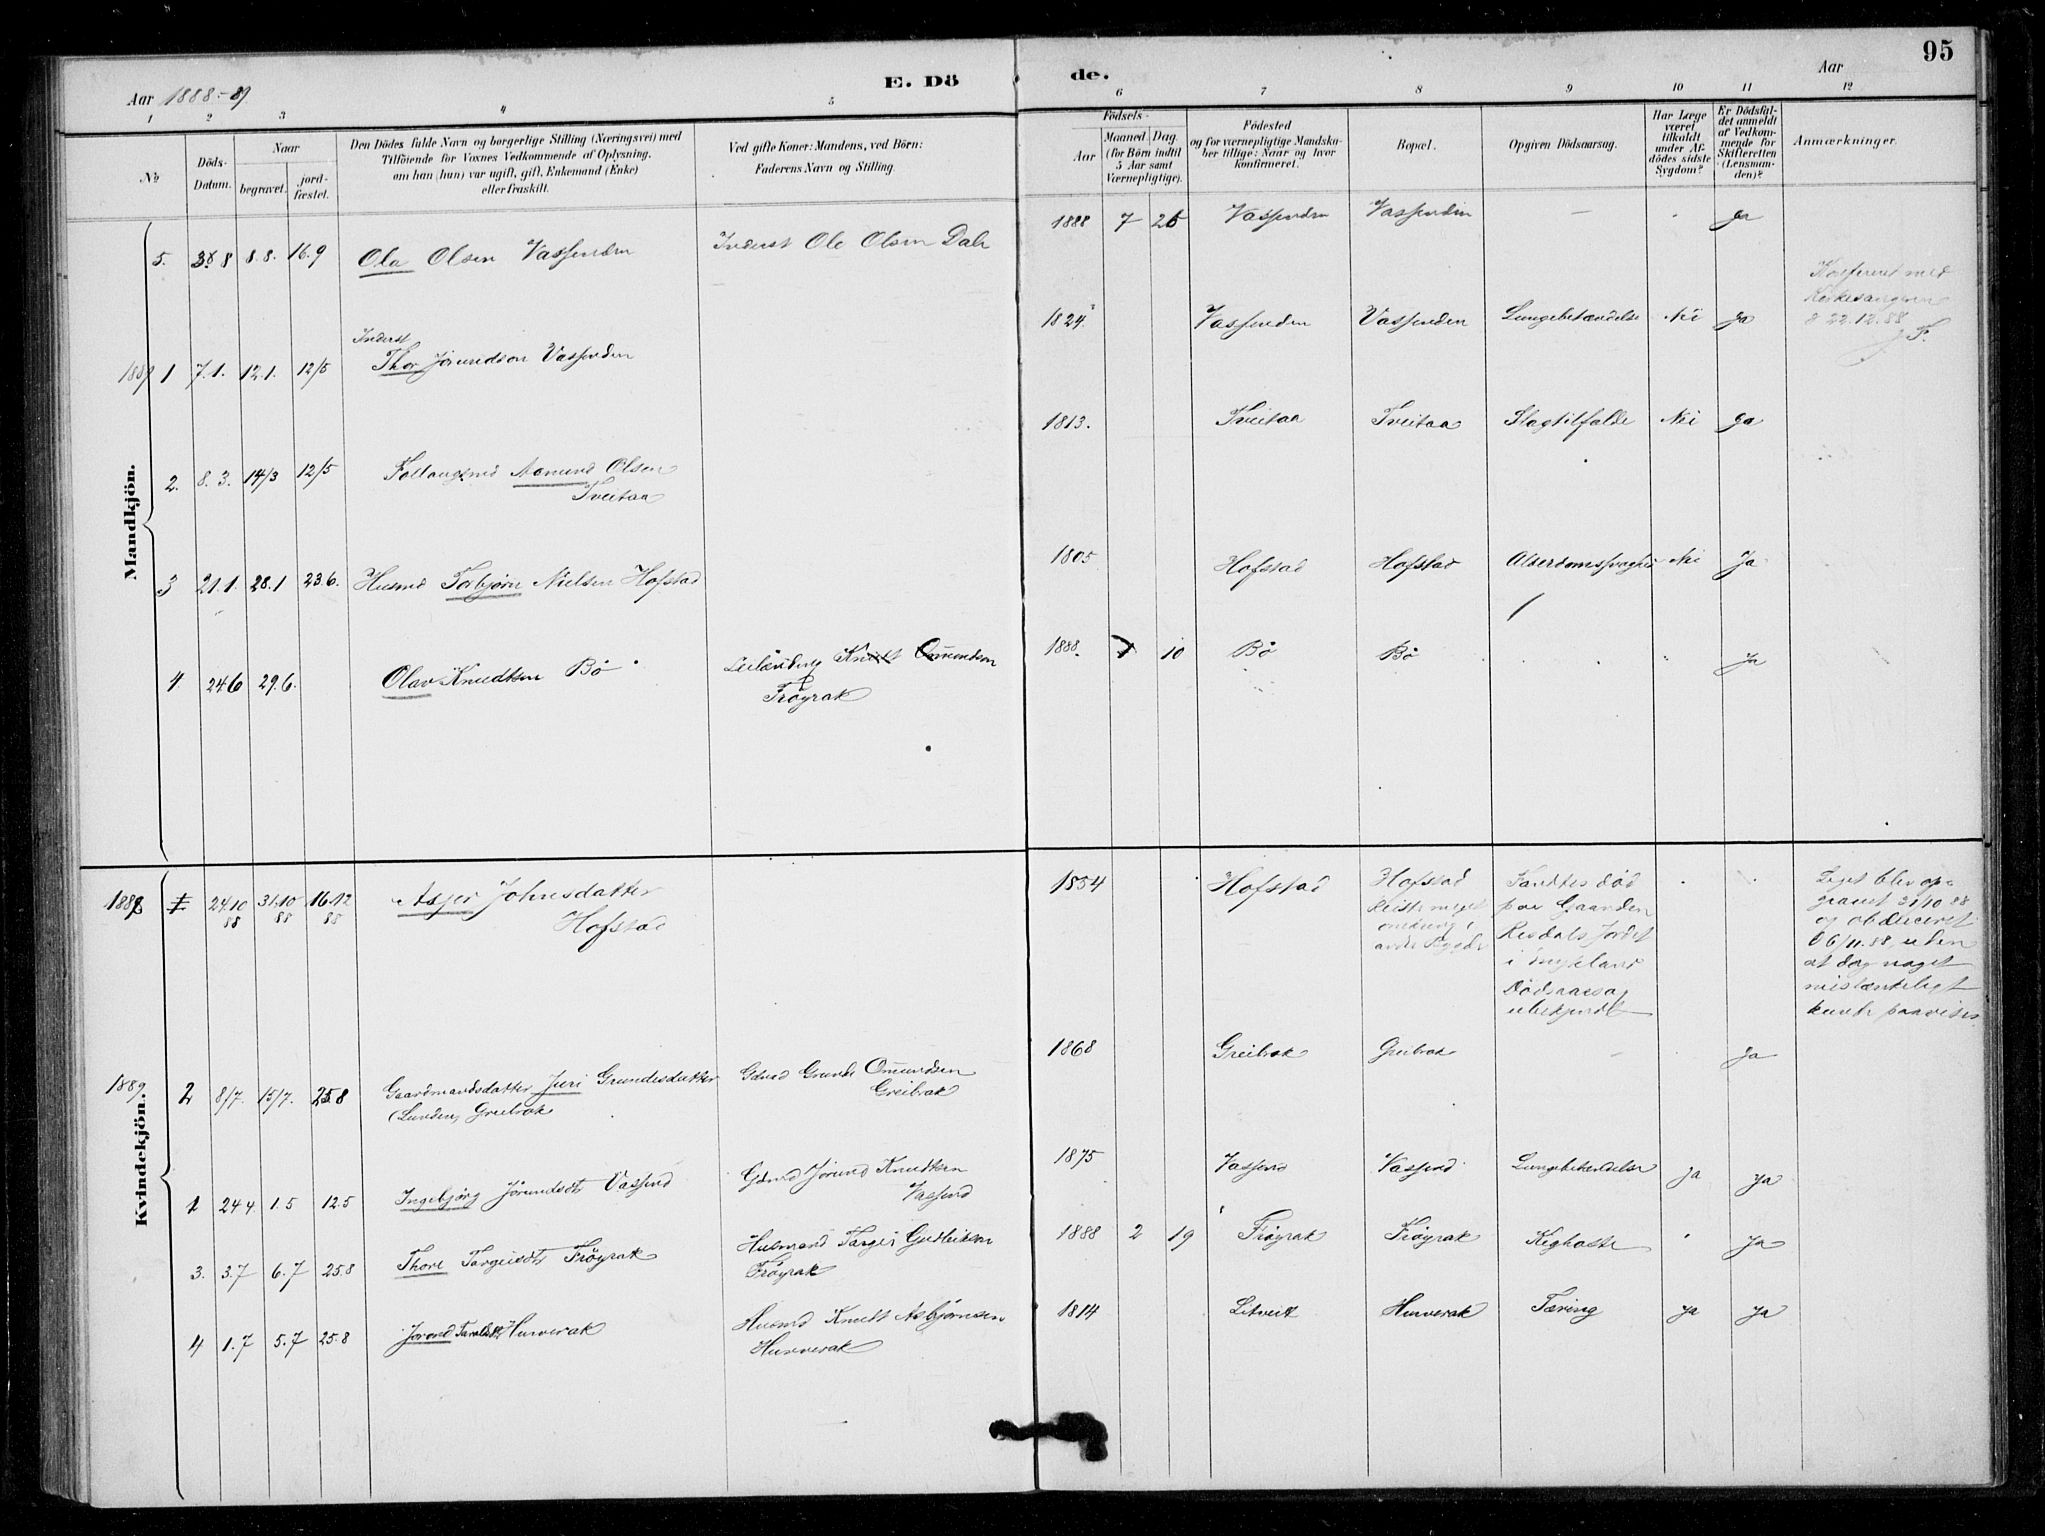 95
Aar 1888-89
E. Dö
de.
Aar
1 2 3 4 5 6 7 8 9 10 11 12
No
Döds-
Datum.
Naar
begravet.
jord-
fæstet.
Den Dödes fulde Navn og borgerlige Stilling (Næringsvei) med
Tilföiende for Voxnes Vedkommende af Oplysning,
om han (hun) var ugift, gift, Enkemand (Enke)
eller fraskilt.
Ved gifte Koner: Mandens, ved Börn:
Faderens Navn og Stilling.
Födsels-
Aar
Maaned
Dag.
(for Börn indtil
5 Aar samt
Værnepligtige).
Födested
og for værnepligtige Mandska-
ber tillige: Naar og hvor
konfirmeret.
Bopæl.
Opgiven Dödsaarsag.
Har Læge
været
tilkaldt
under Af-
dödes sidste
Sygdom?
Er Dödsfal-
det anmeldt
af Vedkom-
mende for
Skifteretten
(Lensman-
den)?
Anmærkninger.
Mandkjön.
5. 8 8.8. 16.9 Ola Olsen Vassenden Inderst Ole Olsen Dale 1888 7 26 Vassenden Vassenden — Ja
Konfereret med
Kirkesangeren
d 22.12.88
J F.
1889 1 7.1. 12.1. 12/5 Inderst
Thor Jörundson Vassenden 1824 Vassenden Vassenden Lungebetændelse Nei Ja
2. 8.3. 14/3 12/5 Aamund Olsen
Tveitaa 1813. Tveitaa Tveitaa Slagtilfælde Nei Ja
3 21.1. 28.1 23.6. Husmd Torbjørn Nielsen Hofstad 1805 Hofstad Hofstad Alderdomssvaghed Nei Ja
4. 24.6 29.6. Olav Knudtsen Bö Leilænding Knudt Omundson
Fröyrak 1888. 1 10 Bö Bö Ja
Kvindekjön.
1888 1 24.10
88 31.10
88 16.12
88 Asjer Johnsdatter
Hofstad 1854 Hofstad Hofstad
Reiste meget
omkring i
andre Bygder
Fandtes död
paa Gaarden
Risdals Jordet
i Mykland
Dödsaarsag
ubekjendt
Liget blev op-
gravet 31/10 88
og obduceret
d 6/11.88, uden
at dog noget
mistænkeligt
kunde paavises.
1889 2 8/7. 15/7. 25.8 Gaardmandsdatter Juri Grundesdatter
(Lunden) Greibrok Gdmd Grunde Omundsen
Greibrok 1868 Greibrok Greibrok Ja
1 24.4. 1.5 12.5 Ingebjørg Jörundsdt Vassend Gdmd Jörund Knudtsen
Vassend 1875 Vassend Vassend Lungebetændelse Ja Ja
3. 3.7 6.7 25.8 Thore Targeisdt Fröyrak Husmand Targei Gudleiksen
Fröyrak 1888 2 19 Fröyrak Fröyrak Kighoste Ja
4 1.7 5.7 25.8 Jorond Taraldsdt Hunverak Husmd Knudt Asbjørnsen
Hunverak 1814 Litveit Hunverak Tæring Ja Ja